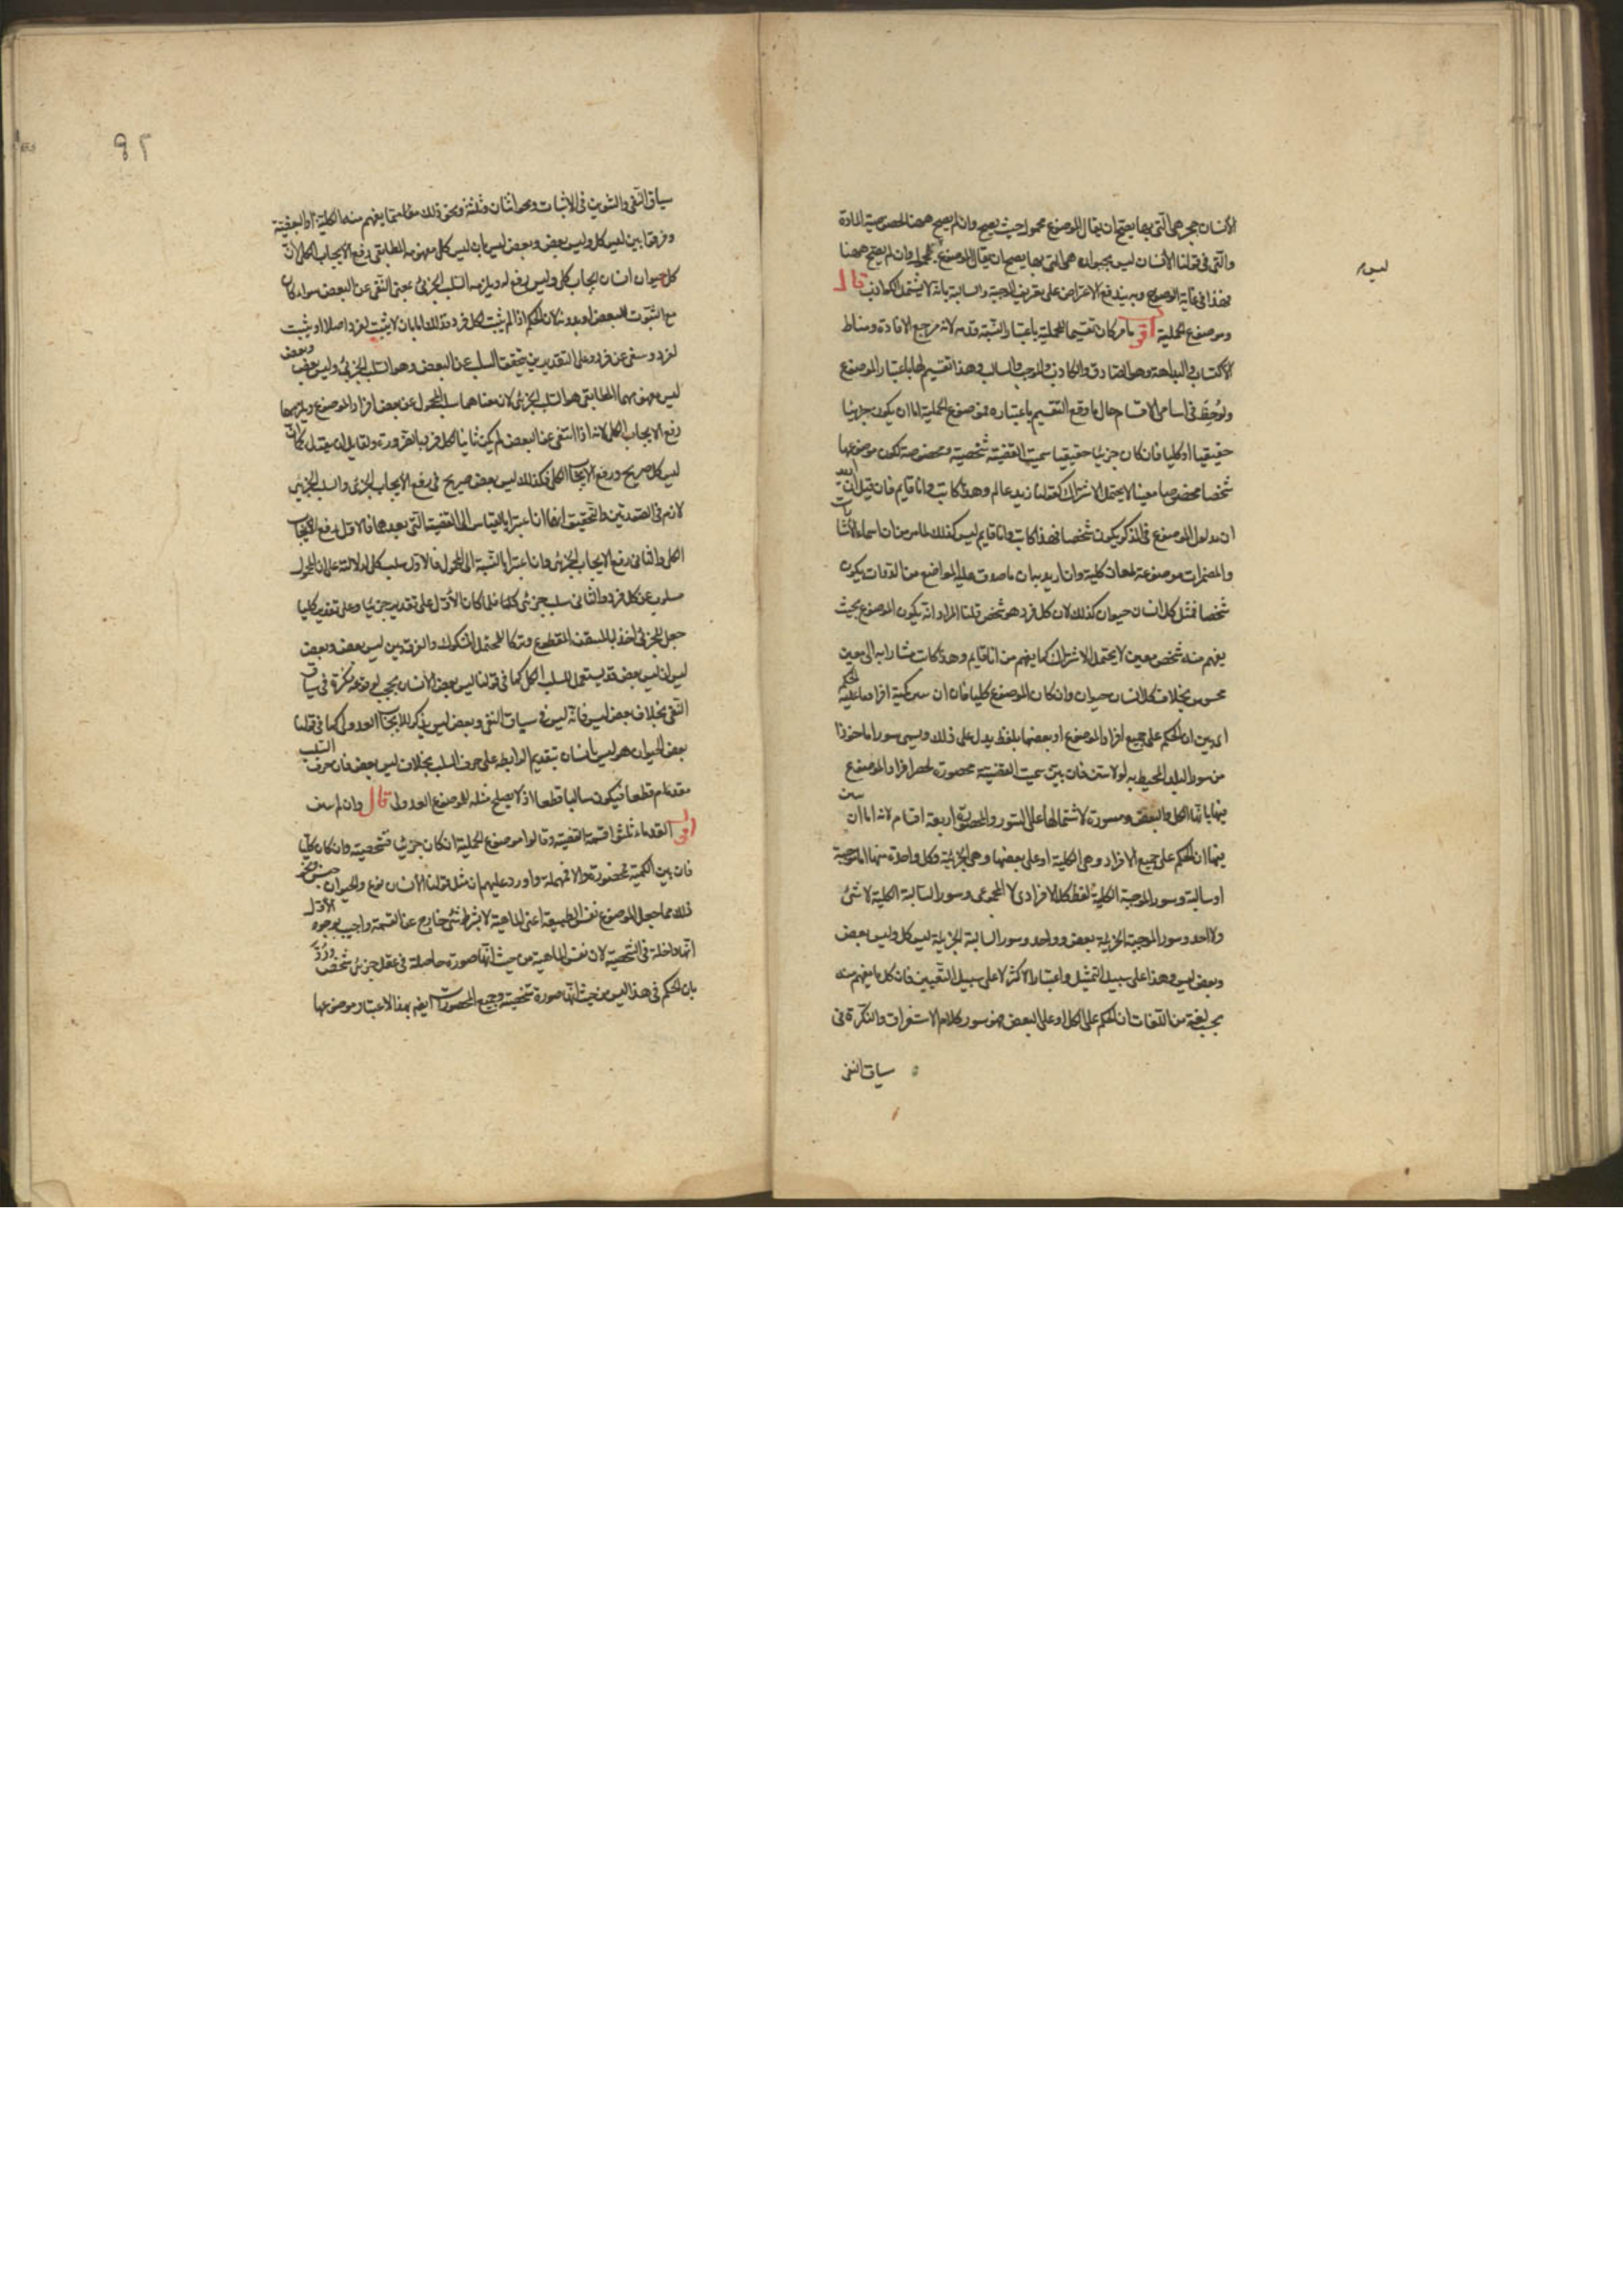 الأنسان حجر هى التى بها يصح ان يقال الموضوع محمول حيث يصح وان لم يصح ههنا لخصوصية المادة
والتى فى قولنا الأنسان ليس بحيوان هى التى بها يصح ان يقال الموضوع محمول وان لم يصح ههنا
فهذا فى غاية الوضوح وبه يندفع الاعتراض على تعريف الموجبة والسالبة بانه لا يشمل الكواذب قال
وموضوع الحملية اقول ما مر كان تقسيما للحملية باعتبار النسبة قدمه لانه مرجع الافادة ومناط
الاكتساب فى البداهة وهو الصادق والكاذب والموجب والسالب وهذا تقسيم لها باعتبار الموضوع
ولوحظ فى اسامى الاقسام حال ما وقع التقسيم باعتباره فموضوع الحملية اما ان يكون جزئيا
حقيقيا او كليا فان كان جزئيا حقيقيا سميت القضية شخصية ومخصوصة لكون موضوعها
شخصا مخصوصا معينا لا يحتمل الاشتراك كقولنا زيد عالم وهذا كاتب وانا قايم فان قيل ان اريد
ان مدلول الموضوع فى الذكر يكون شخصا فهذا كاتب وانا قايم ليس كذلك لما مر من ان اسماء الاشارات
والمضمرات موضوعة لمعان كلية وان اريد بيان ما صدق عليه الموضوع من الذوات يكون
شخصا فمثل كل انسان حيوان كذلك لان كل فرد هو شخص قلنا المراد انه يكون الموضوع بحيث
يفهم منه شخص معين لا يحتمل الاشتراك كما يفهم من انا قايم وهذا كاتب مشارا به الى معين
محسوس بخلاف كل انسان حيوان وان كان الموضوع كليا فان بين كمية افراد ما عليه الحكم
اى بين ان الحكم على جميع افراد الموضوع او بعضها بلفظ يدل على ذلك ويسمى سورا ماخوذا
من سور البلد المحيط به اولا تبين فان بين سميت القضية محصورة لحصر افراد الموضوع
فيها بانها الكل والبعض ومسورة لاشتمالها على السور والمحصورة اربعة اقسام لانه اما ان بين
فيها ان الحكم على جميع الافراد وهى الكلية او على بعضها وهى الجزئية وكل واحدة منهما اما موجبة
او سالبة وسور الموجبة الكلية لفظ كل الافرادى لا المجموعى وسور السالبة الكلية لا شئ
ولا واحد وسور الموجبة الجزئية بعض وواحد وسور السالبة الجزئية ليس كل وليس بعض
وبعض ليس وهذا على سبيل التمثيل واعتبار الاكثر لا على سبيل التعيين فان كل ما يفهم منه
بحسب لغة من اللغات ان الحكم على الكل او على البعض فهو سور كلام الاستغراق والنكرة فى
سياق النفى
٩٢
سياق النفى والتنوين فى الاثبات ونحو اثنان وثلثة ونحو ذلك مما يفهم منه الكلية او البعضية
وفرقوا بين ليس كل وليس بعض وبعض ليس بان ليس كل مفهومه المطابقى رفع الايجاب الكلى لان
كل حيوان انسان ايجاب كلى وليس رفع له ويلزمه السلب الجزئى بمعنى النفى عن البعض سواء كان
مع الثبوت للبعض او بدونه لان الحكم اذا لم يثبت لكل فرد فذلك اما بان لا يثبت لفرد اصلا او يثبت
لفرد وينتفى عن فرد وعلى التقديرين يتحقق السلب عن البعض وهو السلب الجزئى وليس بعض وبعض
ليس مفهومهما المطابقى هو السلب الجزئى لان معناهما سلب المحمول عن بعض افراد الموضوع ويلزمهما
رفع الايجاب الكلى لانه اذا انتفى عن البعض لم يكن ثابتا لكل فرد بالضرورة ولقايل ان يقول كما ان
ليس كل صريح فى رفع الايجاب الكلى فكذلك ليس بعض صريح فى رفع الايجاب الجزئى والسلب الجزئى
لازم فى الصورتين والتحقيق انهما ان اعتبرا بالقياس الى القضية التى بعدهما فالاول رفع الايجاب
الكلى والثانى رفع الايجاب الجزئى وان اعتبرا بالنسبة الى المحمول فالاول سلب كلى لدلالته على ان المحمول
مسلوب عن كل فرد والثانى سلب جزئى كلما كان الاول على تقدير جزئيا وعلى تقدير كليا
جعل للجزئى اخذا بالمتيقن المقطوع وتركا للمحتمل المشكوك والفرق بين ليس بعض وبعض
ليس ان ليس بعض قد يستعمل للسلب الكلى كما فى قولنا ليس بعض الانسان بحجر لوقوعه نكرة فى سياق
النفى بخلاف بعض ليس فانه ليس فى سياق النفى وبعض ليس يذكر للايجاب العدولى كما فى قولنا
بعض الحيوان هو ليس بانسان بتقديم الرابطة على حرف السلب بخلاف ليس بعض فان حرف السلب
مقدم قطعا فيكون سالبا قطعا اذ لا يصلح مثله للموضوع العدولى قال وان لم يبين
اقول القدماء ثلثوا قسمة القضية وقالوا موضوع الحملية ان كان جزئيا فشخصية وان كان كليا
فان بين الكمية فمحصورة والا فمهملة واورد عليهم ان مثل قولنا الأنسان نوع والحيوان جنس ونحو
ذلك مما جعل الموضوع نفس الطبيعة اعنى الماهية لا بشرط شئ خارج عن القسمة واجيب بوجوه الأول
انها داخلة فى الشخصية لان نفس الماهية من حيث انها صورة حاصلة فى عقل جزئى شخص ورُدّ
بان الحكم فى هذا ليس من حيث انها صورة شخصية وجميع المحصورات ايضا بهذا الاعتبار موضوعها